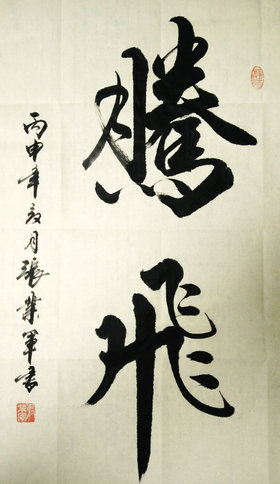 騰飛
丙申年亥月張業軍書